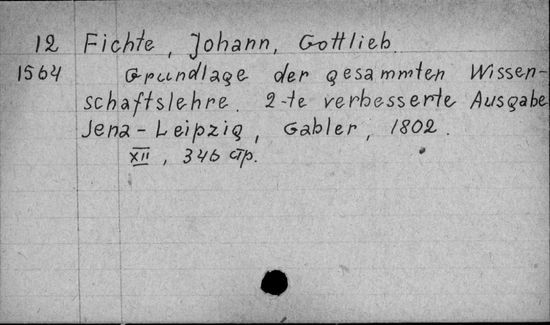 12 Fichte, Johann, Gottlieb.
1564 Grundlage der gesammten Wissen-
schaftslehre. 2-te verbesserte Ausgabe
Jena-Leipzig, Gabler, 1802.
XII, 346 стр.